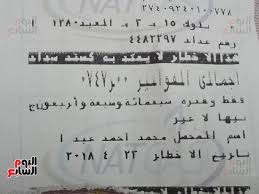 ٢٧٤٠٩٢٤٠٢١٠٠٧٧٨
بلوك ١٥ ٢ م ٢ المعبد ١٢٨٠٠
رقم عداد ٤٤٨٢٢٩٧
هذا الاخطار لا يعتد به كسند سداد
اجمالى الفواتير ٧٤٧ر
فقط وقدره سبعمائة وسبعة واربعون ج
نيها لا غير
اسم المحصل محمد احمد عبد ا
تاريخ الاخطار ٢٢ ٤ ٢٠١٨
اليوم السابع